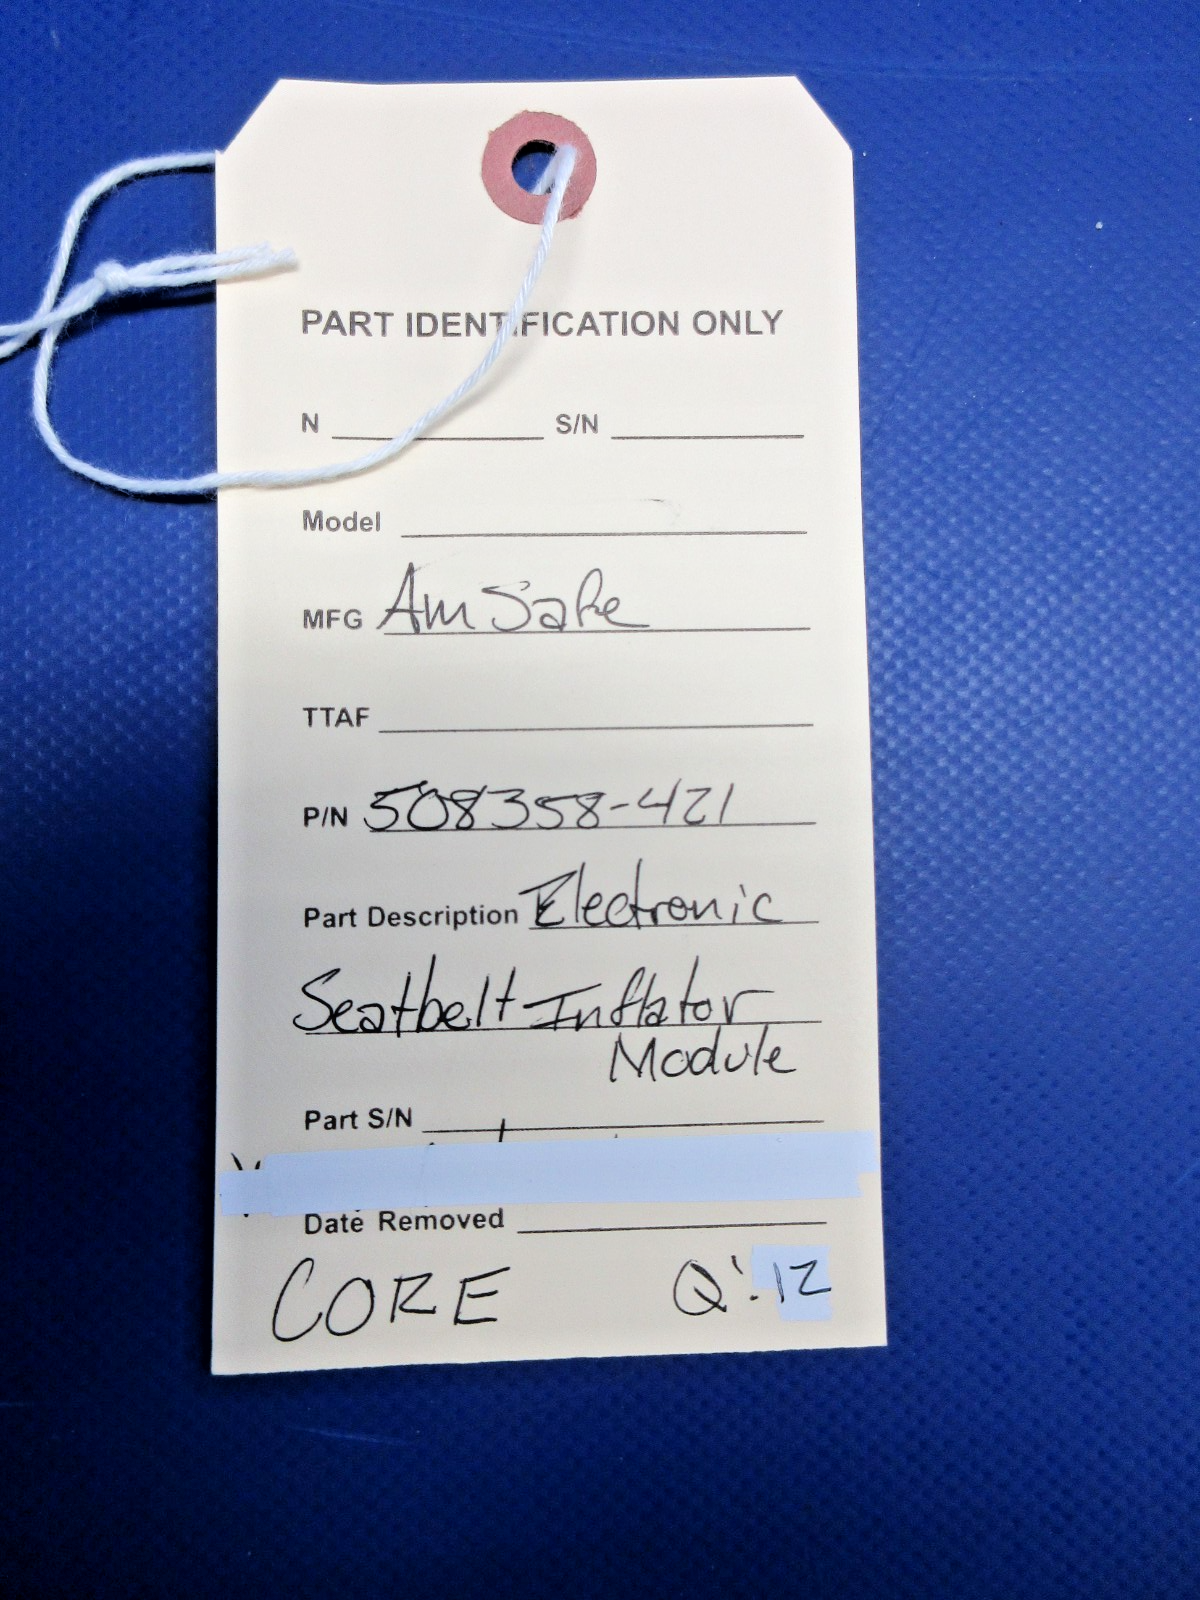 PART IDENTIFICATION ONLY
N S/N
Model
MFG AmSafe
TTAF
P/N 508358-421
Part Description Electronic
Seatbelt Inflator
Module
Part S/N
Date Removed
CORE Q'. 12